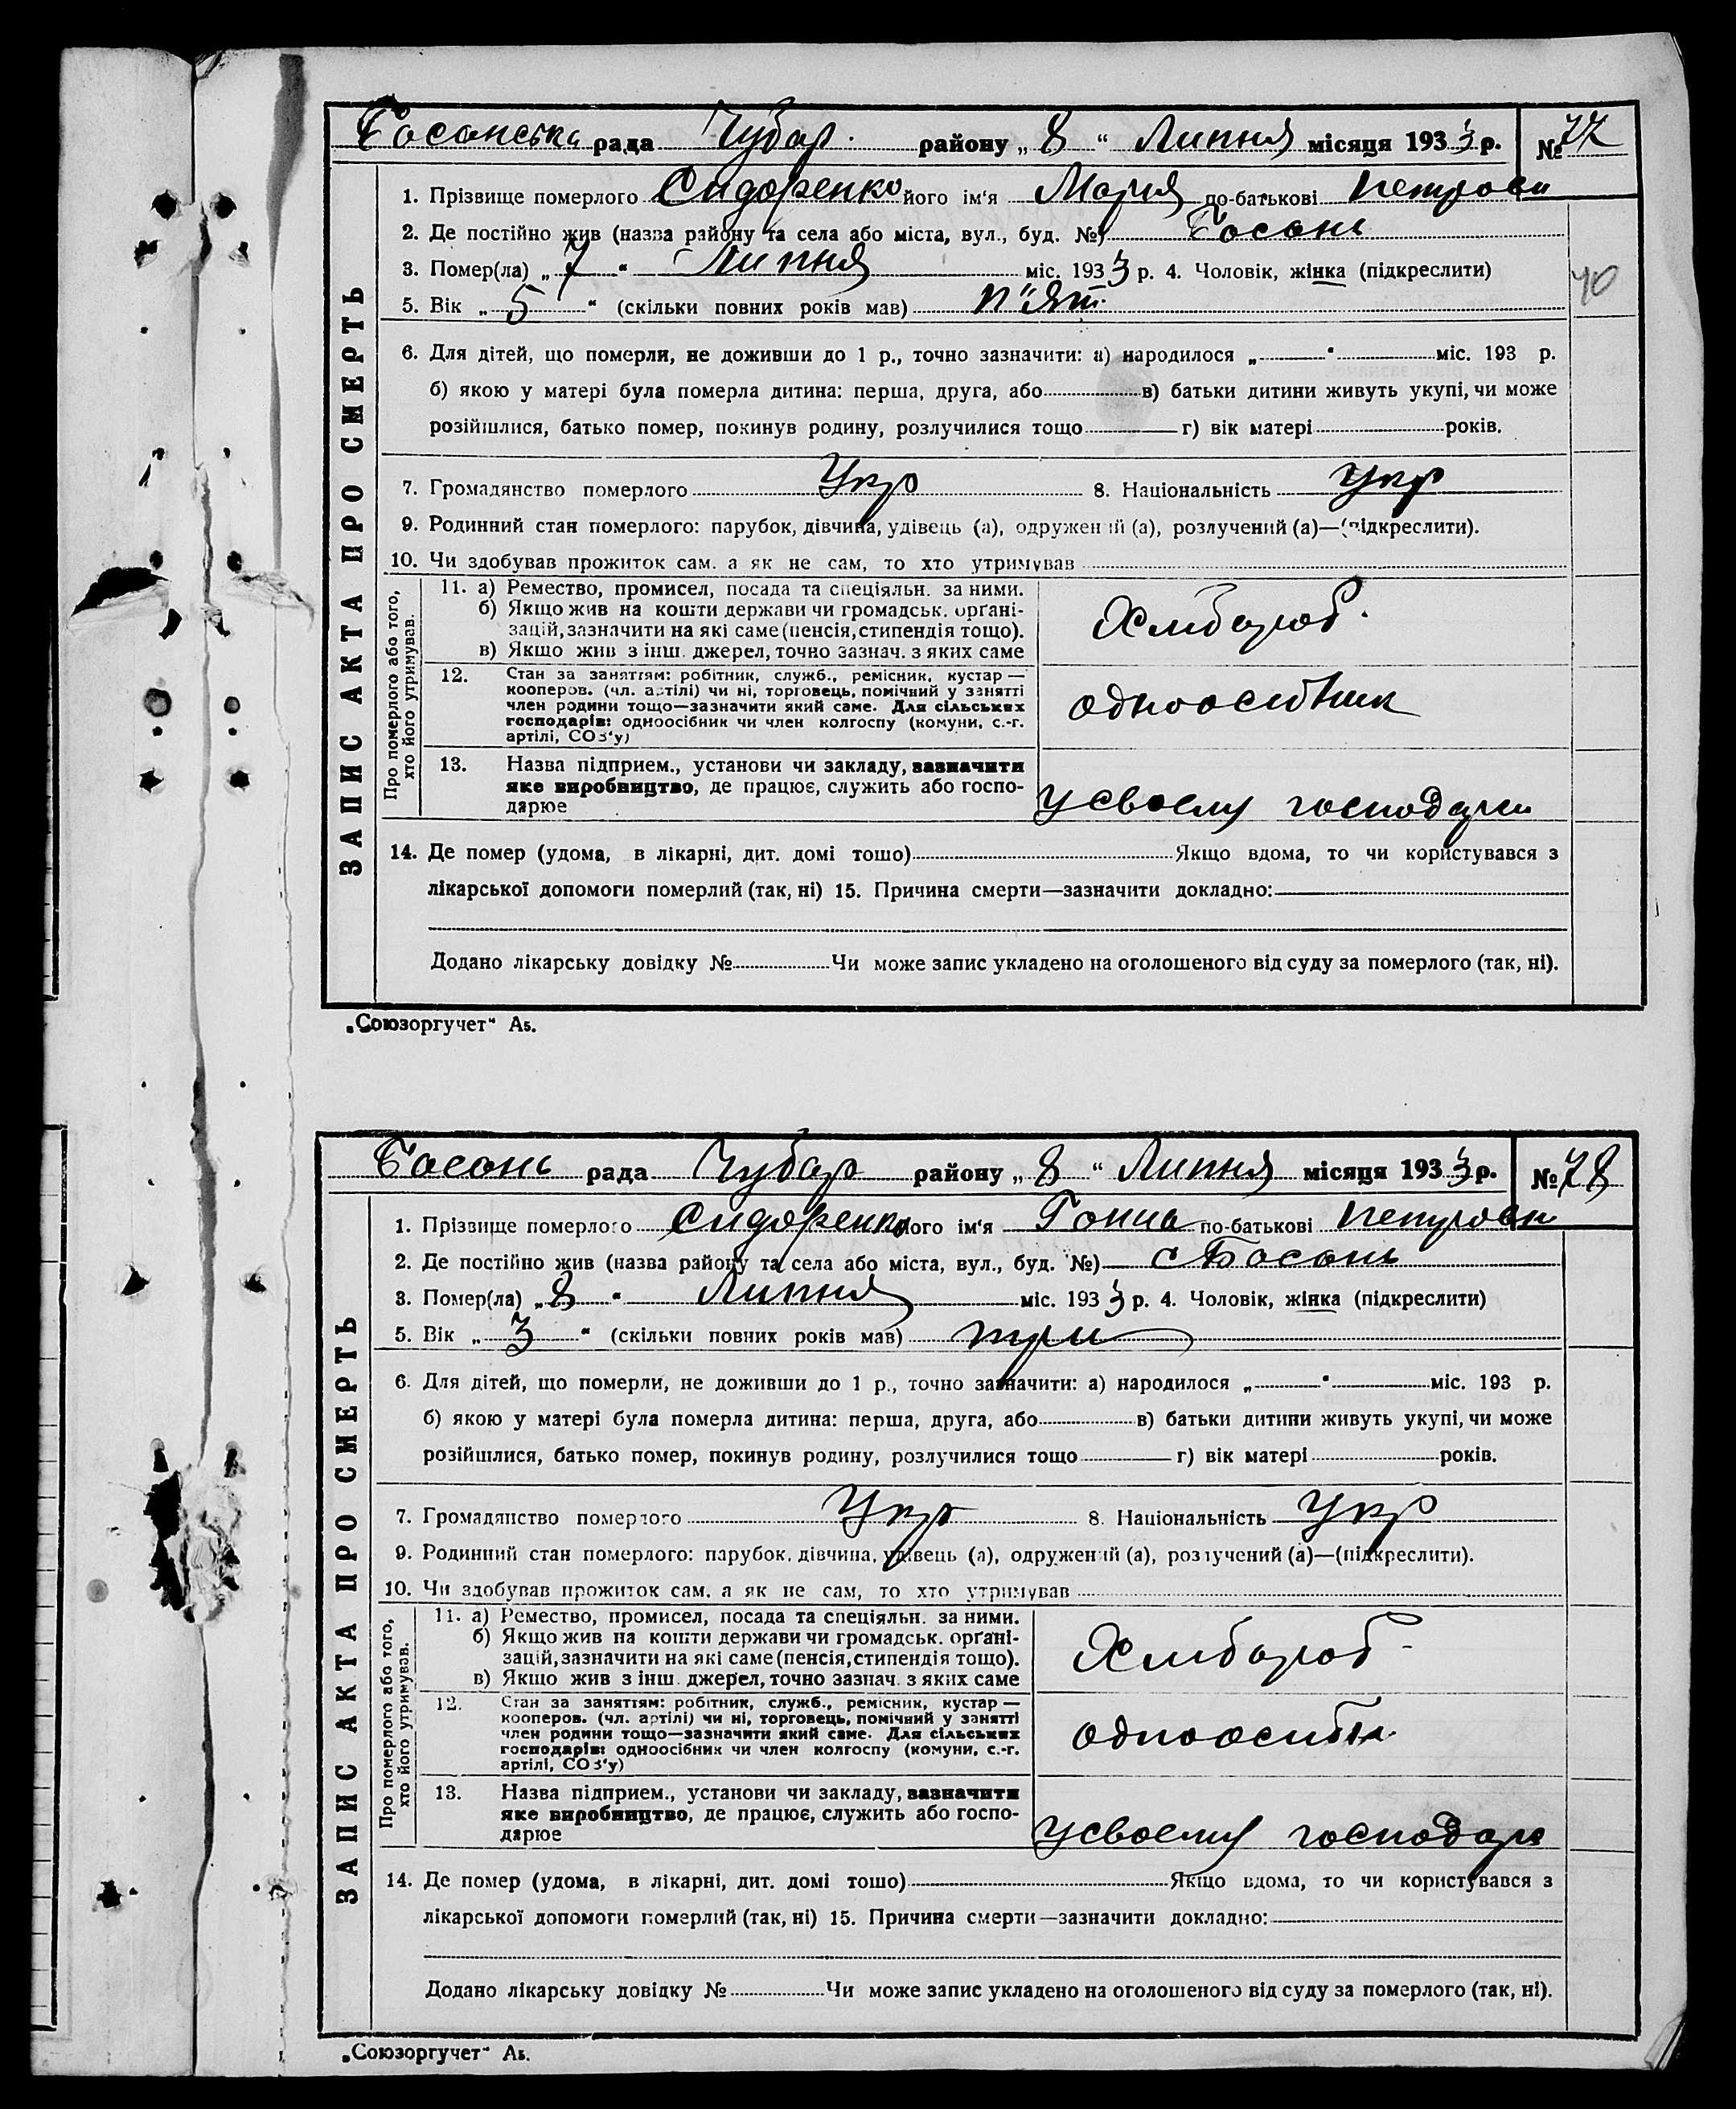 Босонська рада Чубар. району „ 8 “ Липня місяця 1933 р. № 77
ЗАПИС АКТА ПРО СМЕРТЬ
1. Прізвище померлого Сидоренко його ім‘я Мария по-батькові Петрови
2. Де постійно жив (назва району та села або міста, вул., буд. №) Босонь
3. Помер(ла) „ 7 “ Липня міс. 1933 р. 4. Чоловік, жінка (підкреслити)
40
5. Вік „ 5 “ (скільки повних років мав) п"ять
6. Для дітей, що померли, не доживши до 1 р., точно зазначити: а) народилося „ “ міс. 193 р.
б) якою у матері була померла дитина: перша, друга, або в) батьки дитини живуть укупі, чи може
розійшлися, батько помер, покинув родину, розлучилися тощо г) вік матері років.
7. Громадянство померлого Укр 8. Національність Укр
9. Родинний стан померлого: парубок, дівчина, удівець (а), одружений (а), розлучений (а)—(підкреслити).
10. Чи здобував прожиток сам, а як не сам, то хто утримував
Про померлого або того, хто його утримував.
11. а) Ремество, промисел, посада та спеціяльн. за ними.
б) Якщо жив на кошти держави чи громадськ. орґані-
зацій, зазначити на які саме (пенсія, стипендія тощо).
в) Якщо жив з інш. джерел, точно зазнач. з яких саме
Хлибороб.
12. Стан за заняттям: робітник, служб., ремісник, кустар —
кооперов. (чл. артілі) чи ні, торговець, помічний у занятті
член родини тощо—зазначити який саме. Для сільських
господарів: одноосібник чи член колгоспу (комуни, с.-г.
артілі, СОЗ‘у)
одноосибник
13. Назва підприєм., установи чи закладу, зазначити
яке виробництво, де працює, служить або госпо-
дарює
у своему господари
14. Де помер (удома, в лікарні, дит. домі тощо) Якщо вдома, то чи користувався з
лікарської допомоги померлий (так, ні) 15. Причина смерти—зазначити докладно:
Додано лікарську довідку № Чи може запис укладено на оголошеного від суду за померлого (так, ні).
„Союзоргучет“ Аб.
Босонь рада Чубар району „ 8 “ Липня місяця 1933 р. № 78
ЗАПИС АКТА ПРО СМЕРТЬ
1. Прізвище померлого Сидоренко його ім‘я Ганна по-батькові Петровн
2. Де постійно жив (назва району та села або міста, вул., буд. №) с Босонь
3. Помер(ла) „ 8 “ Липня міс. 1933 р. 4. Чоловік, жінка (підкреслити)
5. Вік „ 3 “ (скільки повних років мав) три
6. Для дітей, що померли, не доживши до 1 р., точно зазначити: а) народилося „ “ міс. 193 р.
б) якою у матері була померла дитина: перша, друга, або в) батьки дитини живуть укупі, чи може
розійшлися, батько помер, покинув родину, розлучилися тощо г) вік матері років.
7. Громадянство померлого Укр 8. Національність Укр
9. Родинний стан померлого: парубок, дівчина, удівець (а), одружений (а), розлучений (а)—(підкреслити).
10. Чи здобував прожиток сам, а як не сам, то хто утримував
Про померлого або того, хто його утримував.
11. а) Ремество, промисел, посада та спеціяльн. за ними.
б) Якщо жив на кошти держави чи громадськ. орґані-
зацій, зазначити на які саме (пенсія, стипендія тощо).
в) Якщо жив з інш. джерел, точно зазнач. з яких саме
Хлибороб
12. Стан за заняттям: робітник, служб., ремісник, кустар —
кооперов. (чл. артілі) чи ні, торговець, помічний у занятті
член родини тощо—зазначити який саме. Для сільських
господарів: одноосібник чи член колгоспу (комуни, с.-г.
артілі, СОЗ‘у)
одноосибн.
13. Назва підприєм., установи чи закладу, зазначити
яке виробництво, де працює, служить або госпо-
дарює
у своему господари
14. Де помер (удома, в лікарні, дит. домі тощо) Якщо вдома, то чи користувався з
лікарської допомоги померлий (так, ні) 15. Причина смерти—зазначити докладно:
Додано лікарську довідку № Чи може запис укладено на оголошеного від суду за померлого (так, ні).
„Союзоргучет“ Аб.